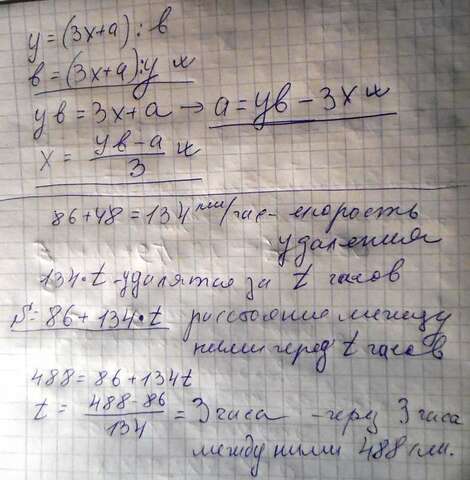 y = (3x+a) : в
в = (3x+a) : y и
yв = 3x+a → a = yв - 3x и
x = \frac{yв - a}{3} и
86+48 = 134 км/час - скорость
удаления
134 · t - удалятся за t часов
S = 86 + 134 · t расстояние между
ними через t часов
488 = 86 + 134t
t = \frac{488 - 86}{134} = 3 часа - через 3 часа
между ними 488 км.